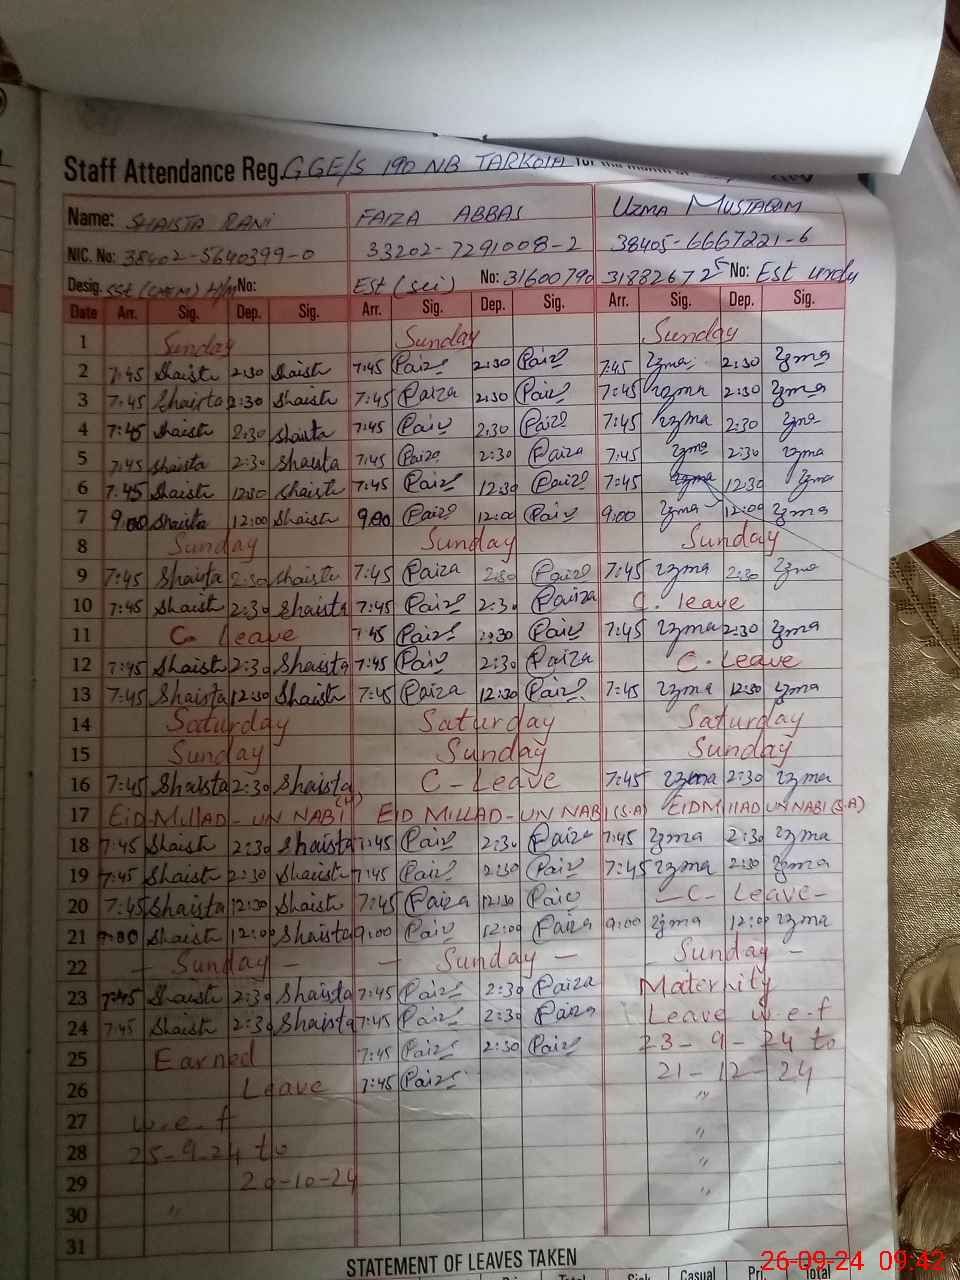 Staff Attendance Reg. GGE/S 190 NB TARKOIA for the month of
Name: SHAISTA RANI FAIZA ABBAS UZMA MUSTABEM
NIC. No: 38402-5640399-0 33202-7291008-2 38405-6667221-6
Desig. SSE (CHEM) H/M No: Est (sci) No: 31600790 318826725 No: Est urdu
Date Arr. Sig. Dep. Sig. Arr. Sig. Dep. Sig. Arr. Sig. Dep. Sig.
1 Sunday Sunday Sunday
2 7:45 Shaista 2:30 Shaista 7:45 Faiza 2:30 Faiza 7:45 Uzma 2:30 Uzma
3 7:45 Shaista 2:30 Shaista 7:45 Faiza 2:30 Faiza 7:45 Uzma 2:30 Uzma
4 7:45 Shaista 2:30 Shaista 7:45 Faiza 2:30 Faiza 7:45 Uzma 2:30 Uzma
5 7:45 Shaista 2:30 Shaista 7:45 Faiza 2:30 Faiza 7:45 Uzma 2:30 Uzma
6 7:45 Shaista 12:30 Shaista 7:45 Faiza 12:30 Faiza 7:45 Uzma 12:30 Uzma
7 9:00 Shaista 12:00 Shaista 9:00 Faiza 12:00 Faiza 9:00 Uzma 12:00 Uzma
8 Sunday Sunday Sunday
9 7:45 Shaista 2:30 Shaista 7:45 Faiza 2:30 Faiza 7:45 Uzma 2:30 Uzma
10 7:45 Shaista 2:30 Shaista 7:45 Faiza 2:30 Faiza C. leave
11 C. leave 7:45 Faiza 2:30 Faiza 7:45 Uzma 2:30 Uzma
12 7:45 Shaista 2:30 Shaista 7:45 Faiza 2:30 Faiza C. Leave
13 7:45 Shaista 12:30 Shaista 7:45 Faiza 12:30 Faiza 7:45 Uzma 12:30 Uzma
14 Saturday Saturday Saturday
15 Sunday Sunday Sunday
16 7:45 Shaista 2:30 Shaista C-Leave 7:45 Uzma 2:30 Uzma
17 EiD-MillAD-UN NABI EID MILLAD-UN NABI (S.A) EIDMIllAD UN NABI (S.A)
18 7:45 Shaista 2:30 Shaista 7:45 Faiza 2:30 Faiza 7:45 Uzma 2:30 Uzma
19 7:45 Shaista 2:30 Shaista 7:45 Faiza 2:30 Faiza 7:45 Uzma 2:30 Uzma
20 7:45 Shaista 12:30 Shaista 7:45 Faiza 12:30 Faiza - C- Leave-
21 9:00 Shaista 12:00 Shaista 9:00 Faiza 12:00 Faiza 9:00 Uzma 12:00 Uzma
22 - Sunday - - Sunday - - Sunday -
23 7:45 Shaista 2:30 Shaista 7:45 Faiza 2:30 Faiza Maternity
24 7:45 Shaista 2:30 Shaista 7:45 Faiza 2:30 Faiza Leave w.e.f
25 Earned 7:45 Faiza 2:30 Faiza 23-9-24 to
26 Leave 7:45 Faiza 21-12-24
27 w.e.f "
28 25-9-24 to "
29 20-10-24 "
30 " "
31
STATEMENT OF LEAVES TAKEN
Total Sick Casual Pri Total
26-09-24 09:42